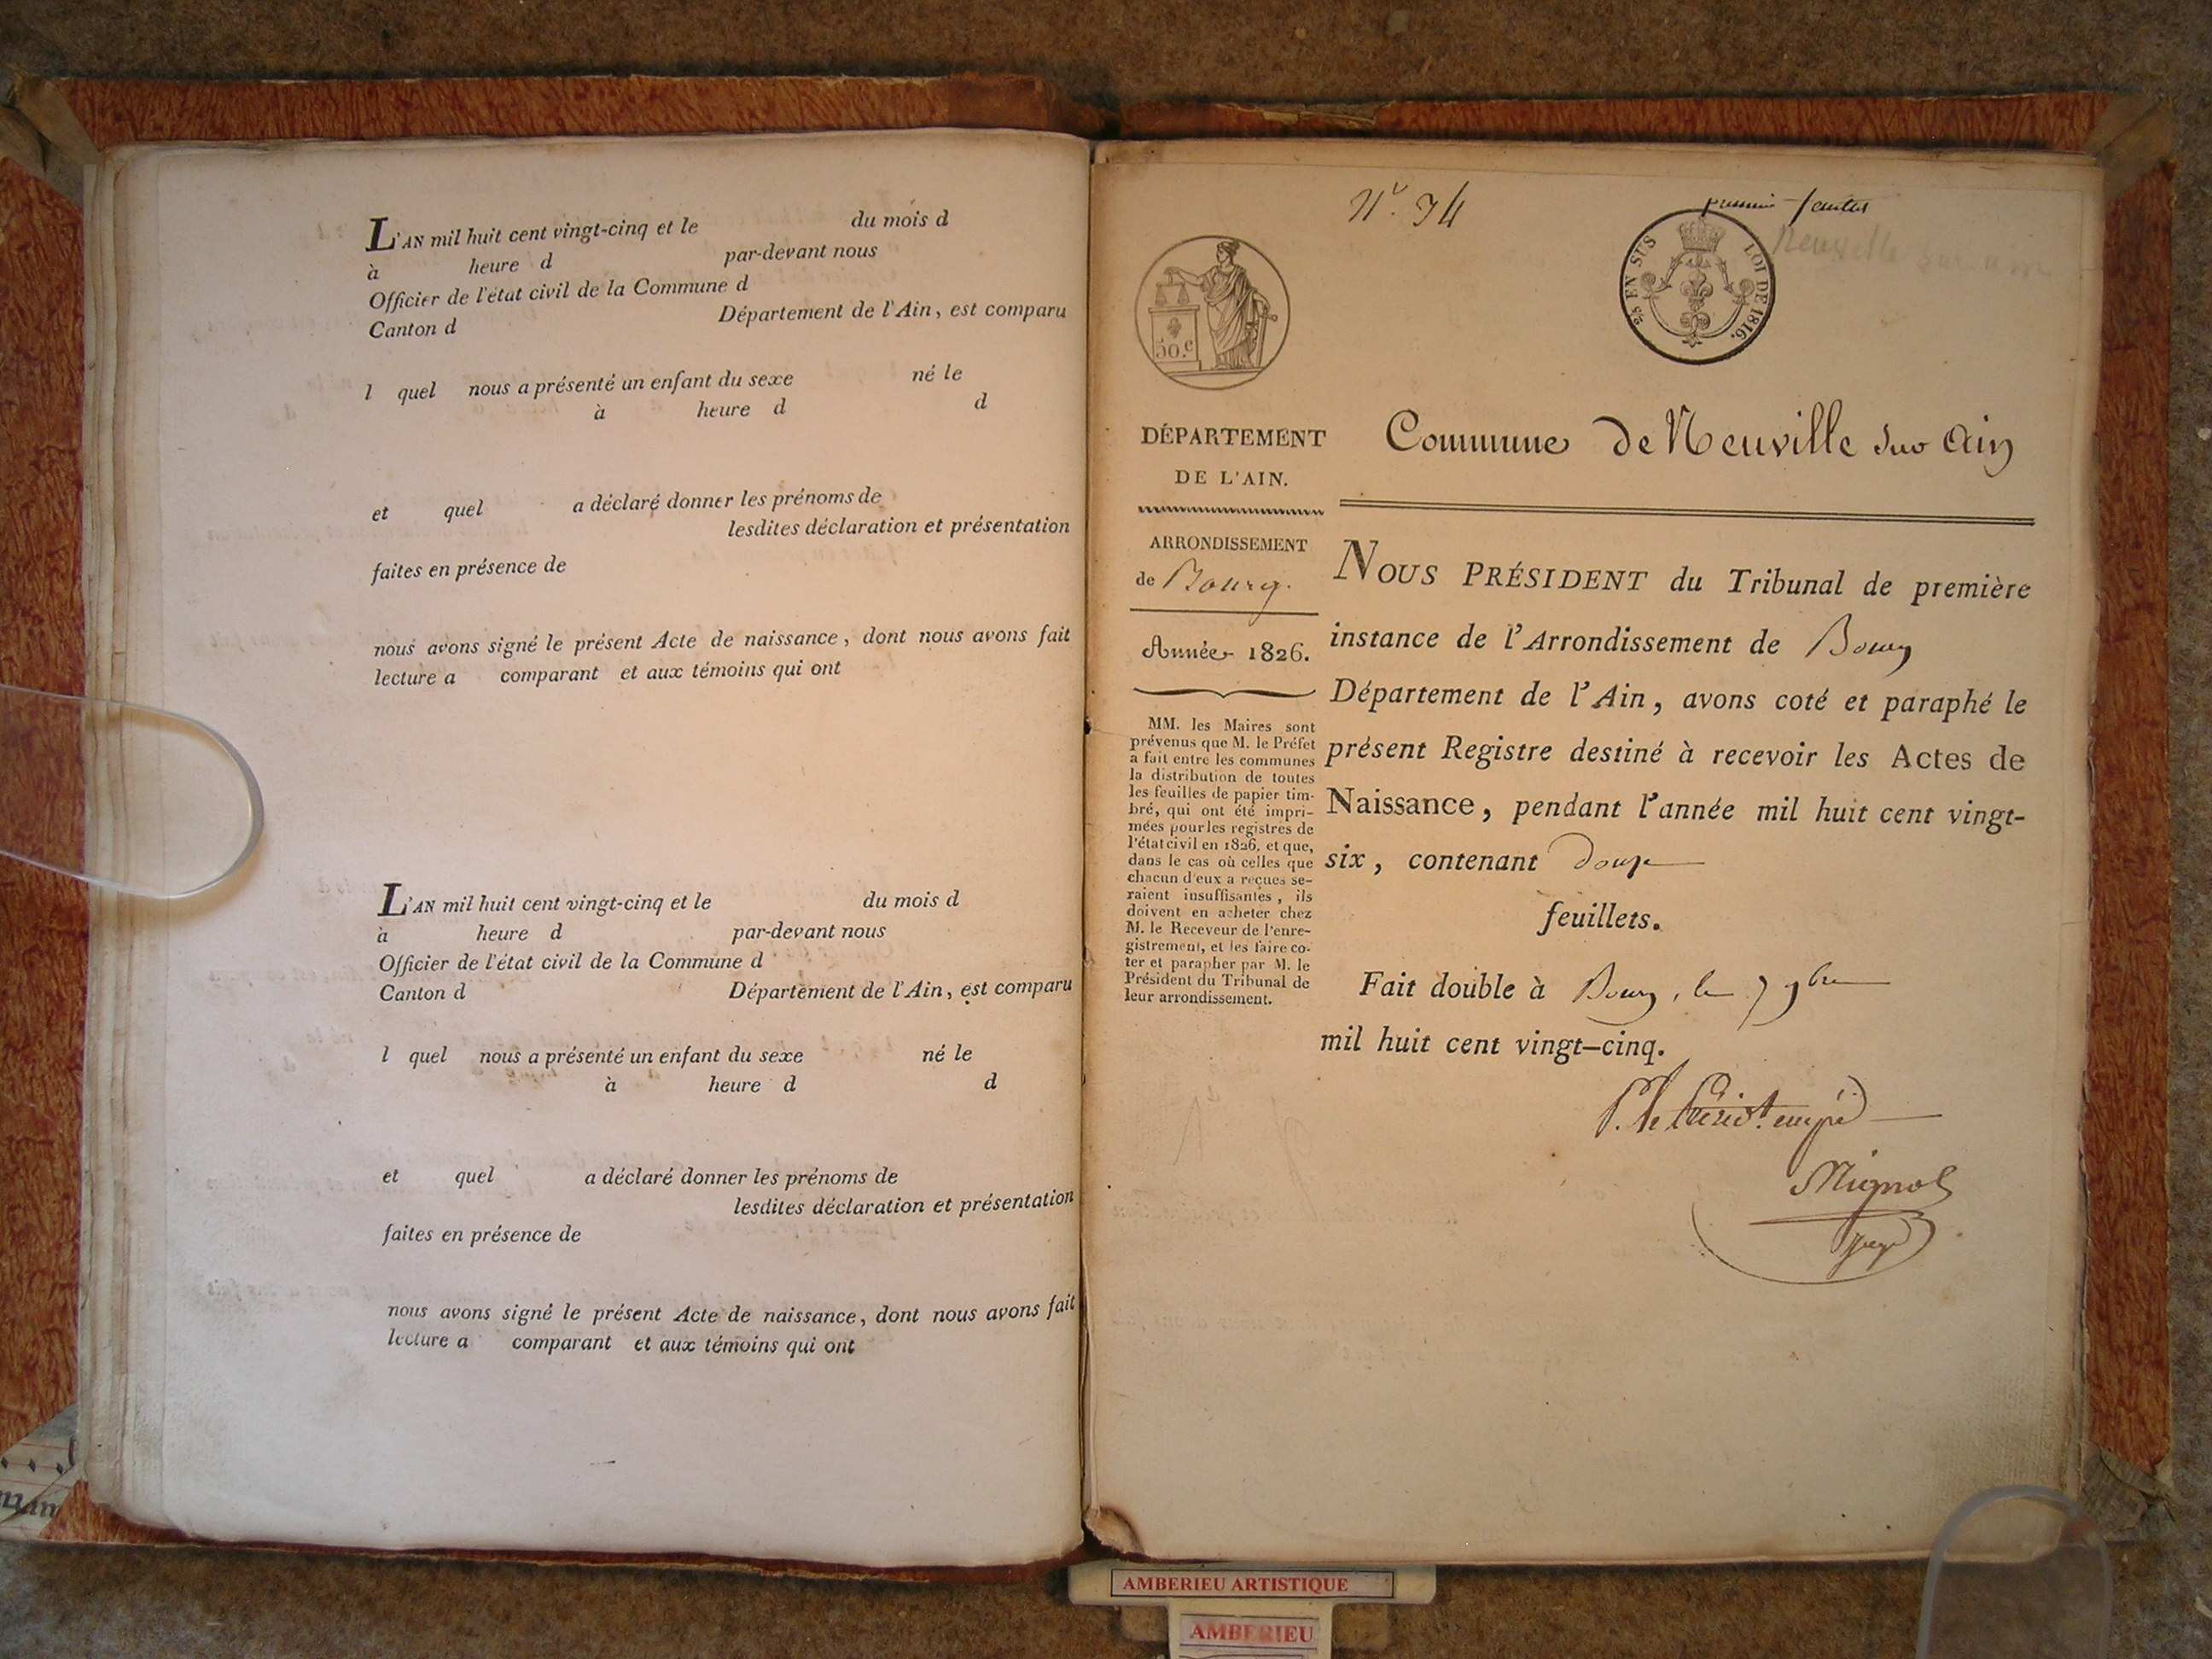 L'AN mil huit cent vingt-cinq et le du mois d
à heure d par-devant nous
Officier de l'état civil de la Commune d
Canton d Département de l'Ain, est comparu
l quel nous a présenté un enfant du sexe né le
à heure d d
et quel a déclaré donner les prénoms de
lesdites déclaration et présentation
faites en présence de
nous avons signé le présent Acte de naissance, dont nous avons fait
lecture a comparant et aux témoins qui ont
L'AN mil huit cent vingt-cinq et le du mois d
à heure d par-devant nous
Officier de l'état civil de la Commune d
Canton d Département de l'Ain, est comparu
l quel nous a présenté un enfant du sexe né le
à heure d d
et quel a déclaré donner les prénoms de
lesdites déclaration et présentation
faites en présence de
nous avons signé le présent Acte de naissance, dont nous avons fait
lecture a comparant et aux témoins qui ont
premier
EN SUS LOI DE 1816.
50.c
DÉPARTEMENT
DE L'AIN.
ARRONDISSEMENT
de Bourg.
Année 1826.
MM. les Maires sont
prévenus que M. le Préfet
a fait entre les communes
la distribution de toutes
les feuilles de papier tim-
bré, qui ont été impri-
mées pour les registres de
l'état civil en 1826, et que,
dans le cas où celles que
chacun d'eux a reçues se-
raient insuffisantes, ils
doivent en acheter chez
M. le Receveur de l'enre-
gistrement, et les faire co-
ter et parapher par M. le
Président du Tribunal de
leur arrondissement.
Commune de Neuville sur Ain
NOUS PRÉSIDENT du Tribunal de première
instance de l'Arrondissement de Bourg
Département de l'Ain, avons coté et paraphé le
présent Registre destiné à recevoir les Actes de
Naissance, pendant l'année mil huit cent vingt-
six, contenant douze
feuillets.
Fait double à Bourg, le 7 9bre
mil huit cent vingt-cinq.
Mignot
juge
AMBERIEU ARTISTIQUE
AMBERIEU